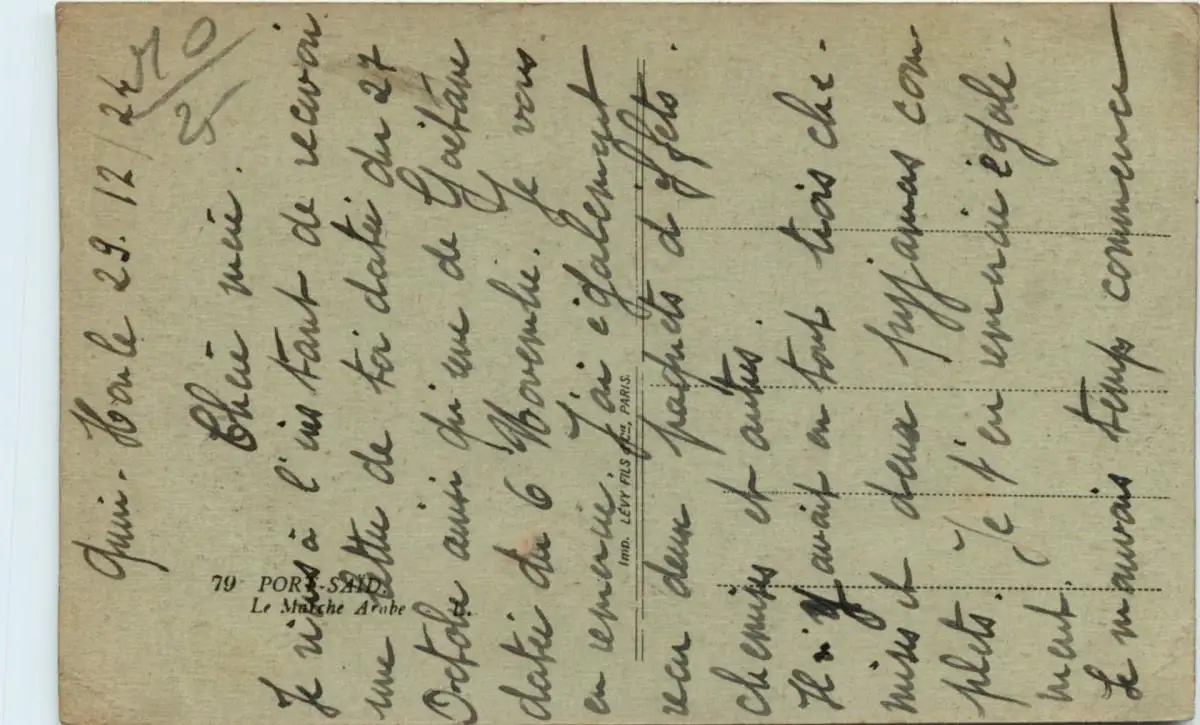 Quin-Hon le 29.12/24
50
25
Chère mère.
Je viens à l'instant de recevoir
une lettre de toi datée du 27
Octobre ainsi qu'une de Gaétane
datée du 6 Novembre. Je vous
en remercie. J'ai également
recu deux paquets d'effets.
chemises et autres.
Il y avait en tout trois che-
mises et deux pyjamas com-
plets. Je t'en remercie égale-
ment.
Le mauvais temps commence
79 PORT-SAÏD.
Le Marché Arabe
Imp. LÉVY FILS & Cie, PARIS.